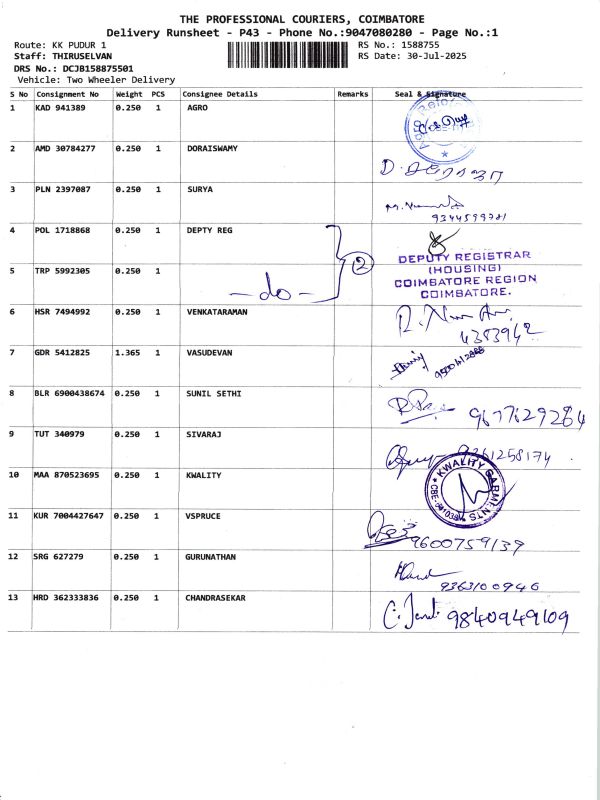 THE PROFESSIONAL COURIERS, COIMBATORE
Delivery Runsheet - P43 - Phone No.:9047080280 - Page No.:1
Route: KK PUDUR 1 RS No.: 1588755
Staff: THIRUSELVAN RS Date: 30-Jul-2025
DRS No.: DCJB158875501
Vehicle: Two Wheeler Delivery
S No Consignment No Weight PCS Consignee Details Remarks Seal & Signature
1 KAD 941389 0.250 1 AGRO
2 AMD 30784277 0.250 1 DORAISWAMY
3 PLN 2397087 0.250 1 SURYA
9344599781
4 POL 1718868 0.250 1 DEPTY REG
DEPUTY REGISTRAR
(HOUSING)
COIMBATORE REGION
COIMBATORE.
5 TRP 5992305 0.250 1 -do- 2
6 HSR 7494992 0.250 1 VENKATARAMAN
4383942
7 GDR 5412825 1.365 1 VASUDEVAN
8 BLR 6900438674 0.250 1 SUNIL SETHI 9677629284
9 TUT 340979 0.250 1 SIVARAJ 9361258174
10 MAA 870523695 0.250 1 KWALITY KWALITY GARMENTS
11 KUR 7004427647 0.250 1 VSPRUCE 9600759139
12 SRG 627279 0.250 1 GURUNATHAN
9363100946
13 HRD 362333836 0.250 1 CHANDRASEKAR 9840949109